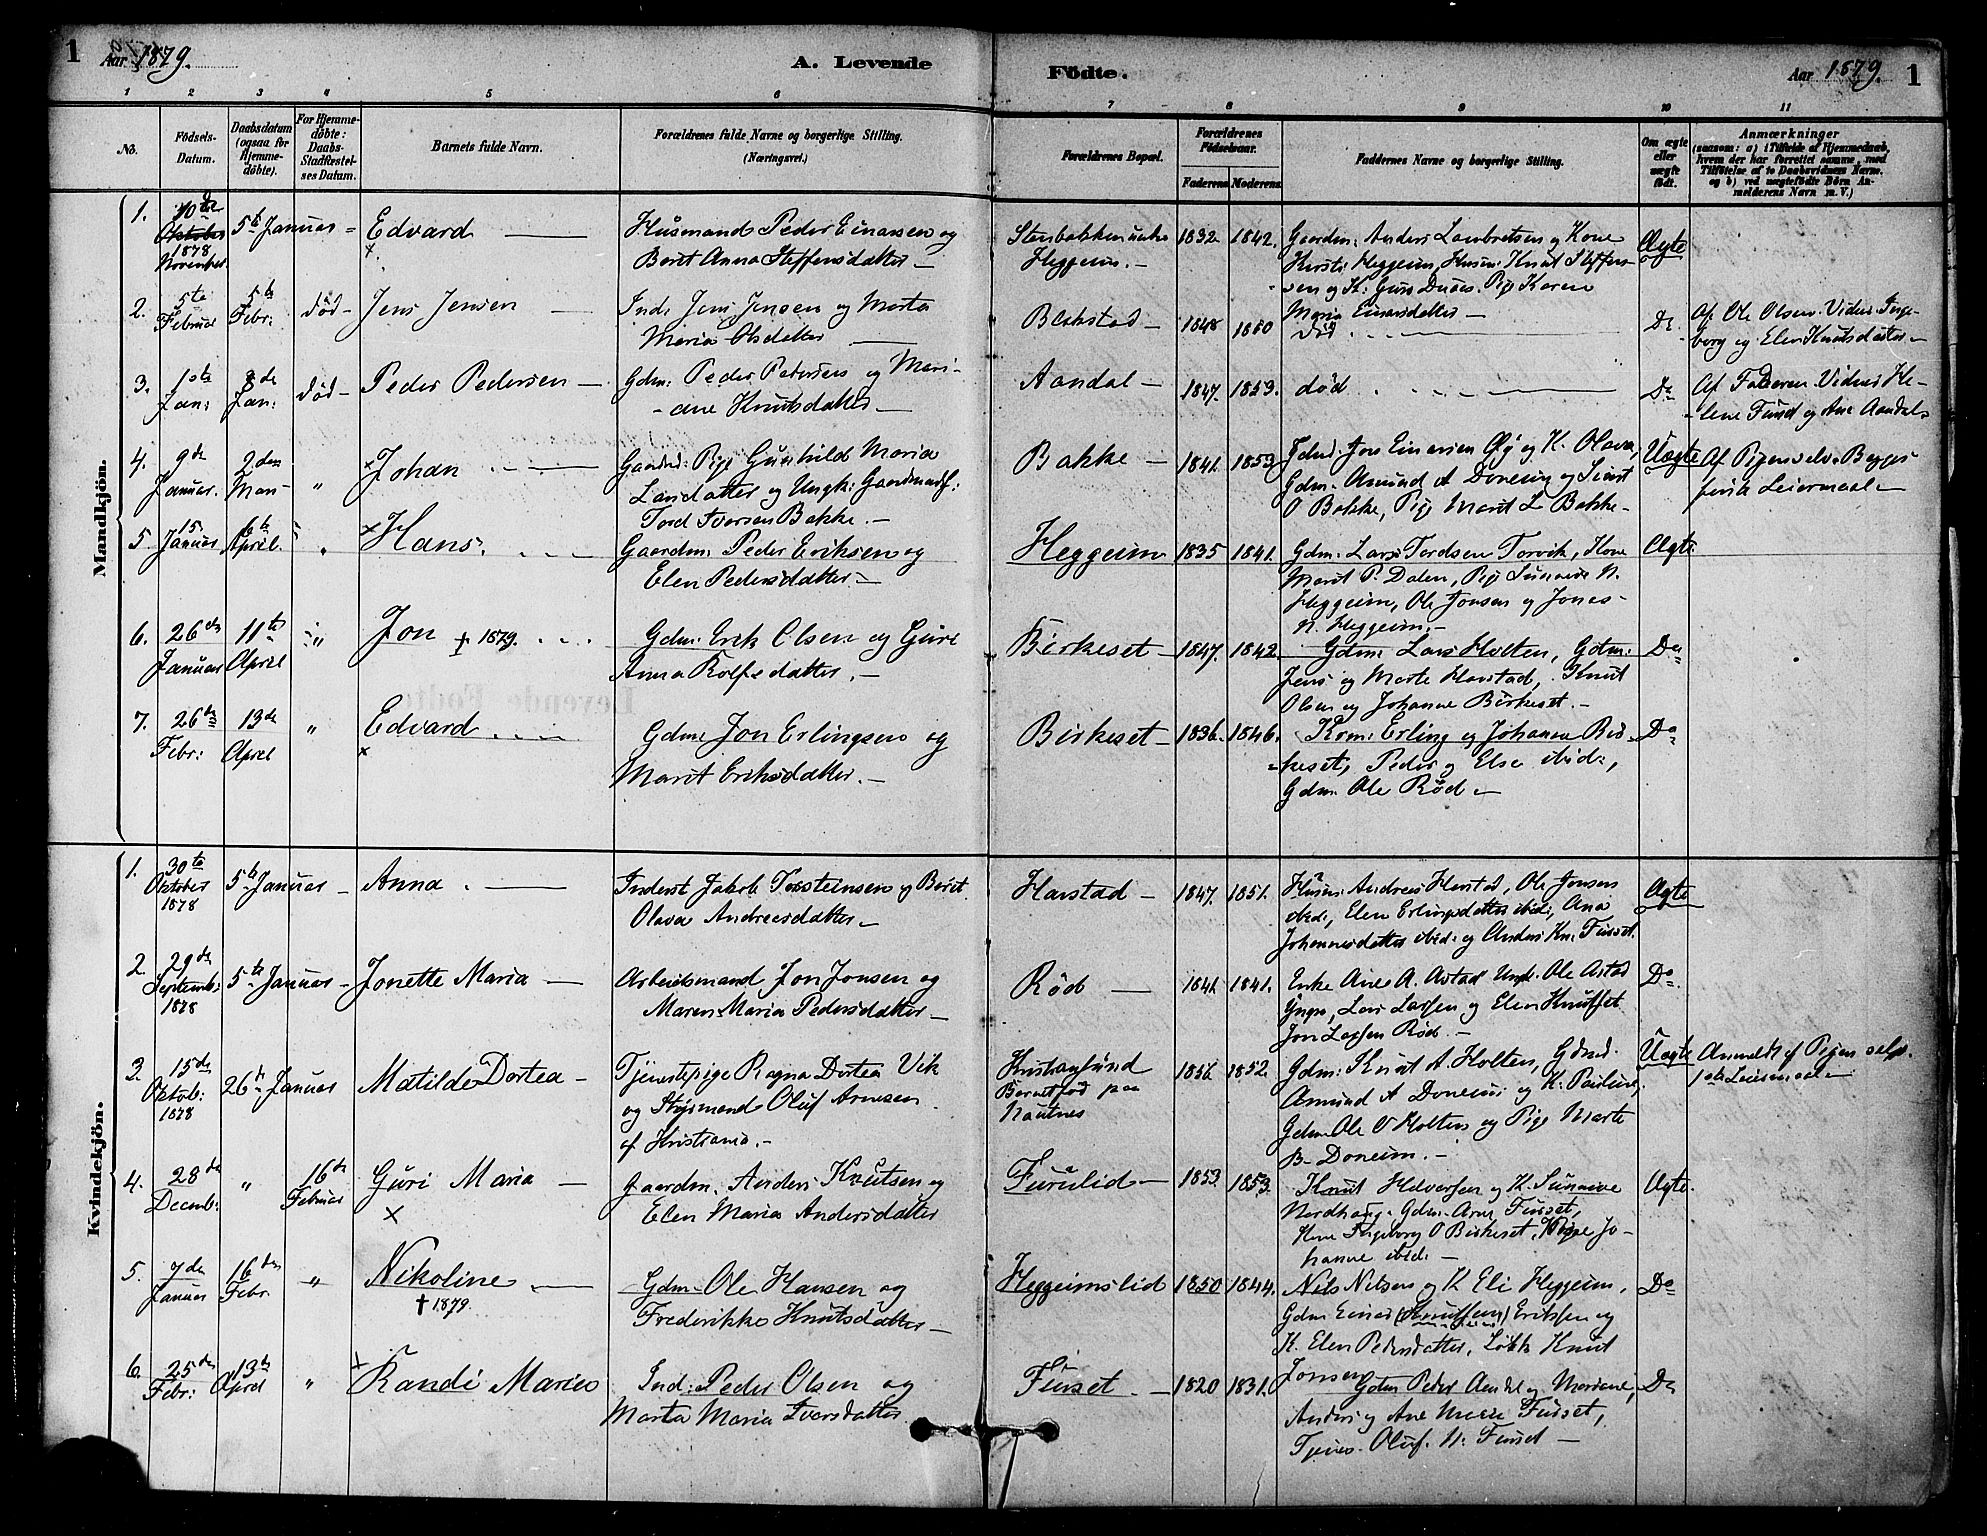 1 Aar 1879. A. Levende Födte. Aar 1879. 1
1 2 3 4 5 6 7 8 9 10 11
No. Födsels-Datum. Daabsdatum (ogsaa for Hjemme-döbte). For Hjemme-döbte: Daabs-Stadfæstel-ses Datum. Barnets fulde Navn. Forældrenes fulde Navne og borgerlige Stilling. (Næringsvei.) Forældrenes Bopæl. Forældrenes Födselsaar. Faderens Moderens Faddernes Navne og borgerlige Stilling. Om ægte eller uægte födt. Anmærkninger
(saasom: a) i Tilfælde af Hjemmedaab,
hvem der har forrettet samme, med
Tilföielse af to Daabsvidners Navne.
og b) ved uægtefödte Börn An-
melderens Navn m. V.)
Mandkjön.
1. 10de Oktober 1878 November 5te Januar Edvard Husmand Peder Einarsen og
Beret Anna Steffensdatter Heggeim. 1832 1842. Gaardm: Anders Lambretsen og Kone
Kirsti Heggeim, Husm: Knut Steffen-
sen og K: Guru Pige Karen
Maria Einarsdatter Ægte
2. 5te Februar 5te Febr: død Jens Jensen Ind: Jens Jensen og Marta
Maria Olsdatter Blakstad 1848 1850 død Do Af Ole Olsen. Vidner Inge-
borg og Elen Knutsdatter
3. 1ste Jan: 8de Jan: død Peder Pedersen Gdm: Peder Petersen og Mari-
ane Knutsdatter Aandal 1847. 1853. død Do Af Faderen. Vidner He-
lene Fuset og Ane Aandal
4. 9de Januar. 2den Mars " Johan Gaardm: Pige Gunhild Maria
Larsdatter og Ungk: Gaardmand:
Tord Iversen Bakke. Bakke 1841. 1853 Gdmd. Jon Einarsen Øy og K. Olava,
Gdm. Amund A Doneim og Sivert
O Bakke, Pige Marit L Bakke Uægte Af Pigen selv. Begges
første Leiermaal
5. 15 Januar 6te April. " Hans. Gaardm: Peder Eriksen og
Elen Pedersdatter Heggeim 1835 1841. Gdm: Lars Tordsen Torvik, Kone
Marit P. Dalen, Pige Sunneva N.
Heggeim, Ole Jonsen og Jonas
N. Heggeim. Ægte
6. 26de Januar 11te April " Jon + 1879. Gdm: Erik Olsen og Guri
Anna Rolfsdatter. Birkeset 1847. 1842 Gdm: Lars Holten, Gdm:
Jens og Marte Harstad, Knut
Olsen og Johanne Birkeset. Do
7. 26de Febr: 13de April " Edvard Gdm Jon Erlingsen og
Marit Eriksdatter. Birkeset 1836. 1846. Kvm: Erling og Johanna Bir-
keset, Peder og Else ibid:,
Gdm. Ole Rød Do
Kvindekjön.
1. 30te Oktober 1878 5te Januar Anna Inderst Jakob Torsteinsen og Beret
Olava Andreasdatter Harstad 1847. 1851. Husm: Andreas Harstad, Ole Jonsen
ibid:, Elen Erlingsdatter ibid:, Ana
Johannesdatter ibid: og Anders Kn: Fusset. Ægte
2. 29de Septemb: 1878 5te Januar Jonette Maria Arbeidsmand Jon Jonsen og
Maren Maria Pedersdatter Rød 1841 1841. Enke Ane A. Astad Ungk. Ole Astad
Lars Larsen og Elen
Jon Larsen Rød. Do.
3. 15de Oktob: 1878 26de Januar Matilde Dortea Tjenestepige Ragna Dortea Vik
og Styrmand Oluf Arnesen
af Kristiania. Kristiansund
Barnet fød paa
Nautnes 1856 1852. Gdm: Knut A. Holten, Gdmd.
Amund A Doneim og K. Pauline,
Gdm Ole O Holten og Pige Marte
B. Doneim. Uægte Anmeldt af Pigen selv.
1ste Leiermaal
4. 28de Decemb: " 16de Februar Guri Maria Gaardm. Anders Knutsen og
Elen Maria Andersdatter Furulid 1853 1853. Knut Halvorsen og K. Sunneve
Nordhaug. Gdm. Arne Fusset,
Kone Ingeborg O Birkeset, Pige Jo-
hanne ibid: Ægte.
5. 7de Januar 16de Febr " Nikoline
† 1879. Gdm. Ole Hansen og
Frederikke Knutsdatter Heggeimslid 1850 1844. Nils Nilsen og K Eli Heggeim,
Gdm Einar (Knutsen) Eriksen og
K. Elen Pedersdatter, Knut
Jonsen Do
6. 25de Febr: 13de April " Randi Marie Ind: Peder Olsen og
Marta Maria Iversdatter. Furset 1820 1831. Gdm Peder Aandal og Mariane,
Anders og Ane Marie Fusset,
Tjenes. Oluf N. Fuset Do